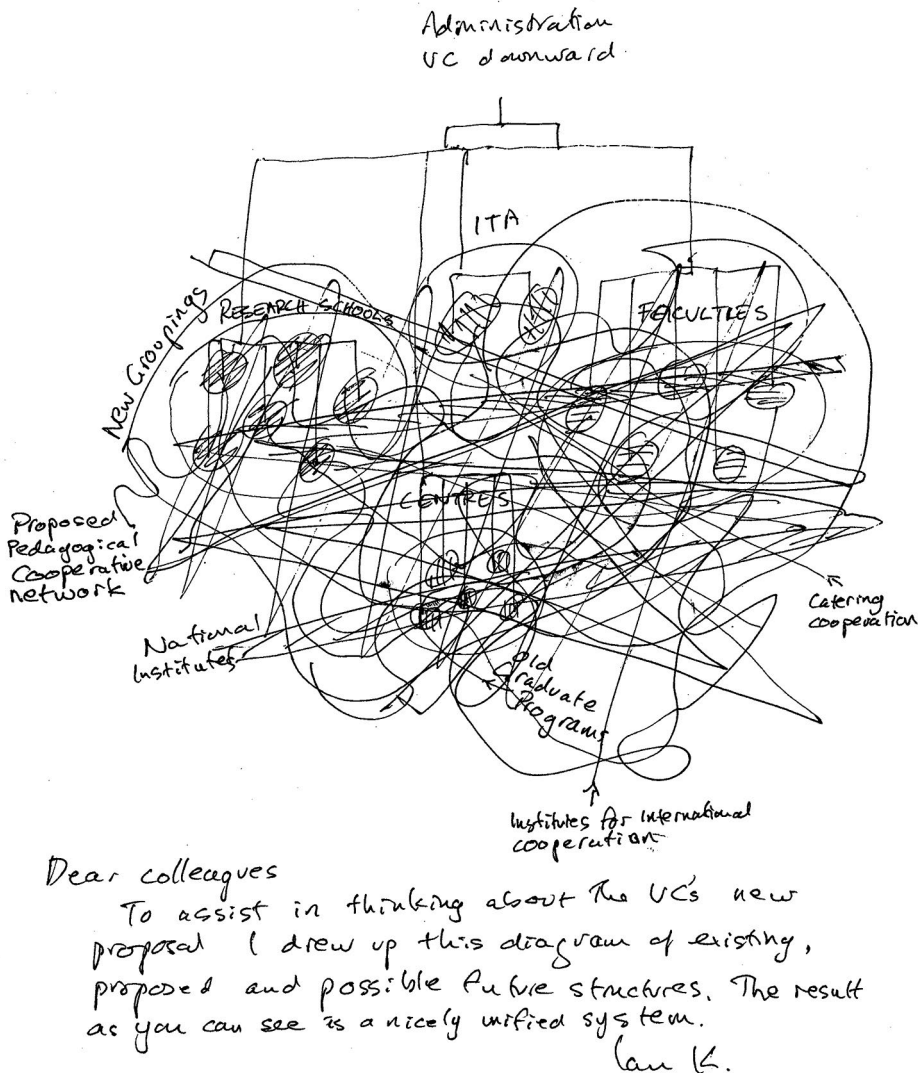 Administration
VC downward
ITA
New Groupings
RESEARCH SCHOOLS
FACULTIES
CENTRES
Proposed
Pedagogical
Cooperative
network
National
Institutes
Catering
cooperation
Old
Graduate
Programs
Institutes for International
cooperation
Dear colleagues
To assist in thinking about the VC's new
proposal I drew up this diagram of existing,
proposed and possible future structures. The result
as you can see is a nicely unified system.
Ian K.